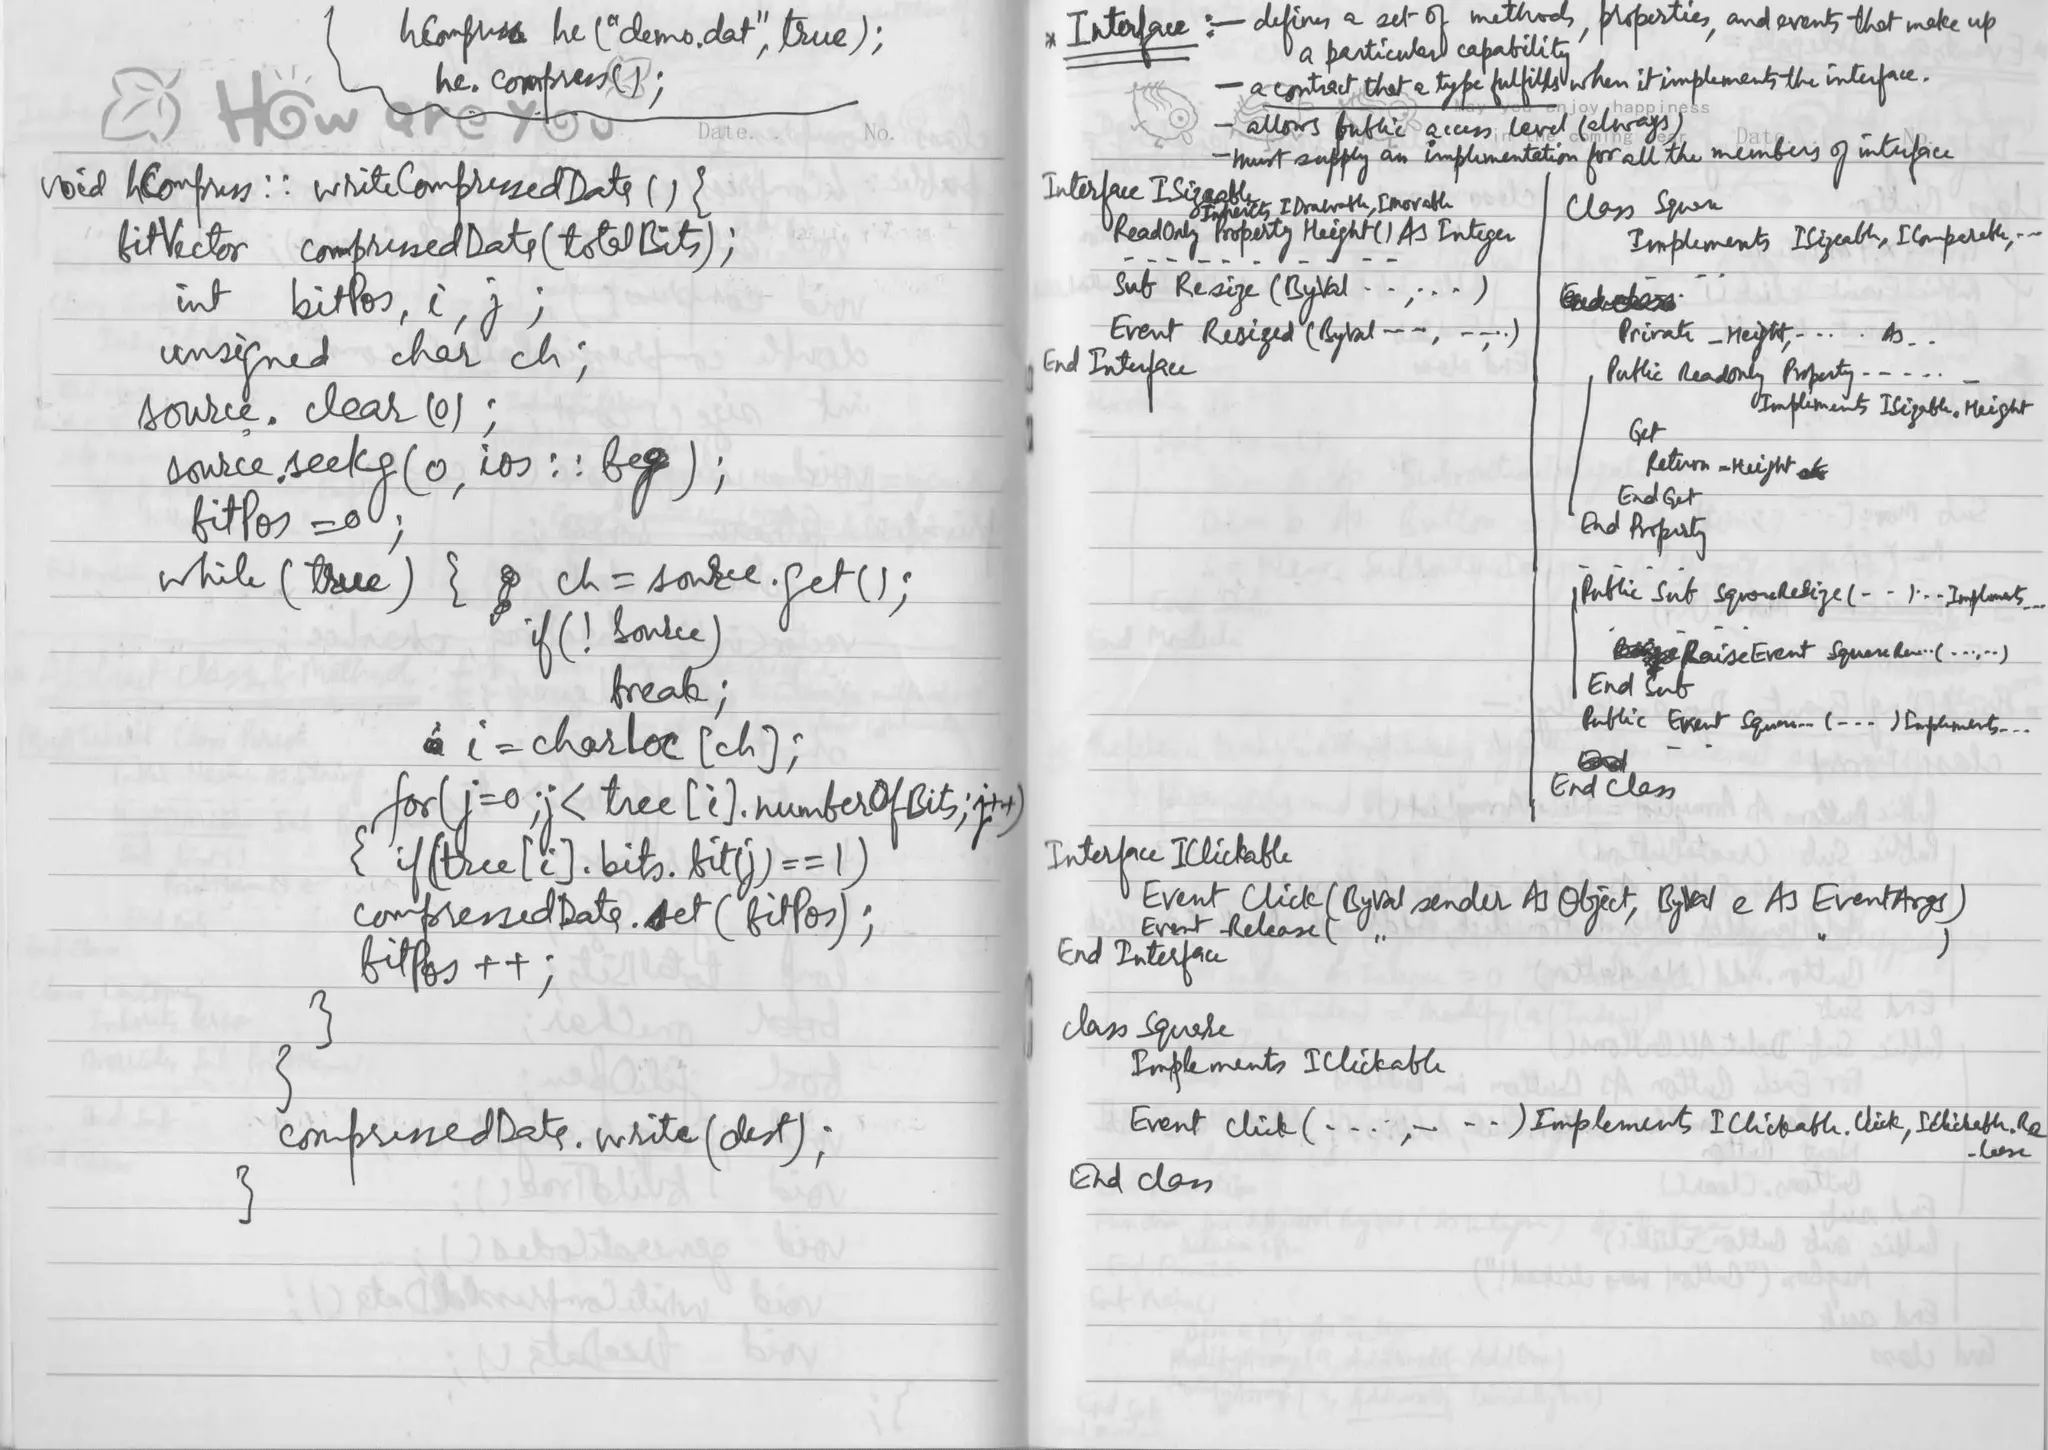 hCompress he("demo.dat", true);
he.compress();
How are you
Date. No.
void hCompress:: writeCompressedData() {
bitVector compressedData(totalBits);
int bitPos, i, j ;
unsigned char ch;
source. clear(0);
source.seekg(0, ios::beg);
bitPos =0;
while (true) { ch = source.get();
if(! source)
break;
i = charloc [ch];
for(j=0;j< tree[i].numberOfBits;j++)
{ if(tree[i].bits.bit(j)==1)
compressedData.set(bitPos);
bitPos ++;
}
}
compressedData.write(dest);
}
* Interface :- — defines a set of methods, properties, and events that make up
a particular capability
— a contract that a type fulfills when it implements the interface.
May you enjoy happiness
— allows public access level (always)
in the coming year Date No.
— must supply an implementation for all the members of interface
Interface ISizeable
Inherits IDrawable, IMovable
ReadOnly Property Height() As Integer
- - - - - - - - -
Sub Resize (ByVal - -, - - -)
Event Resized (ByVal - - -, - - - -)
End Interface
Class Square
Implements ISizeable, IComparable, ---
Private _Height, - - - - As - -
Public Readonly Property - - - - - - _
Implements ISizable.Height
Get
Return _Height
End Get
End Property
Public Sub SquareResize(- - -) - - Implements ---
RaiseEvent SquareRes--(---,--)
End Sub
Public Event Square--- (- - - -) Implements---
End Class
Interface IClickable
Event Click(ByVal sender As Object, ByVal e As EventArgs)
Event Release( " " )
End Interface
class Square
Implements IClickable
Event click(- - - -, - - - -) Implements IClickable.Click, IClickable.Re
-lease
End class